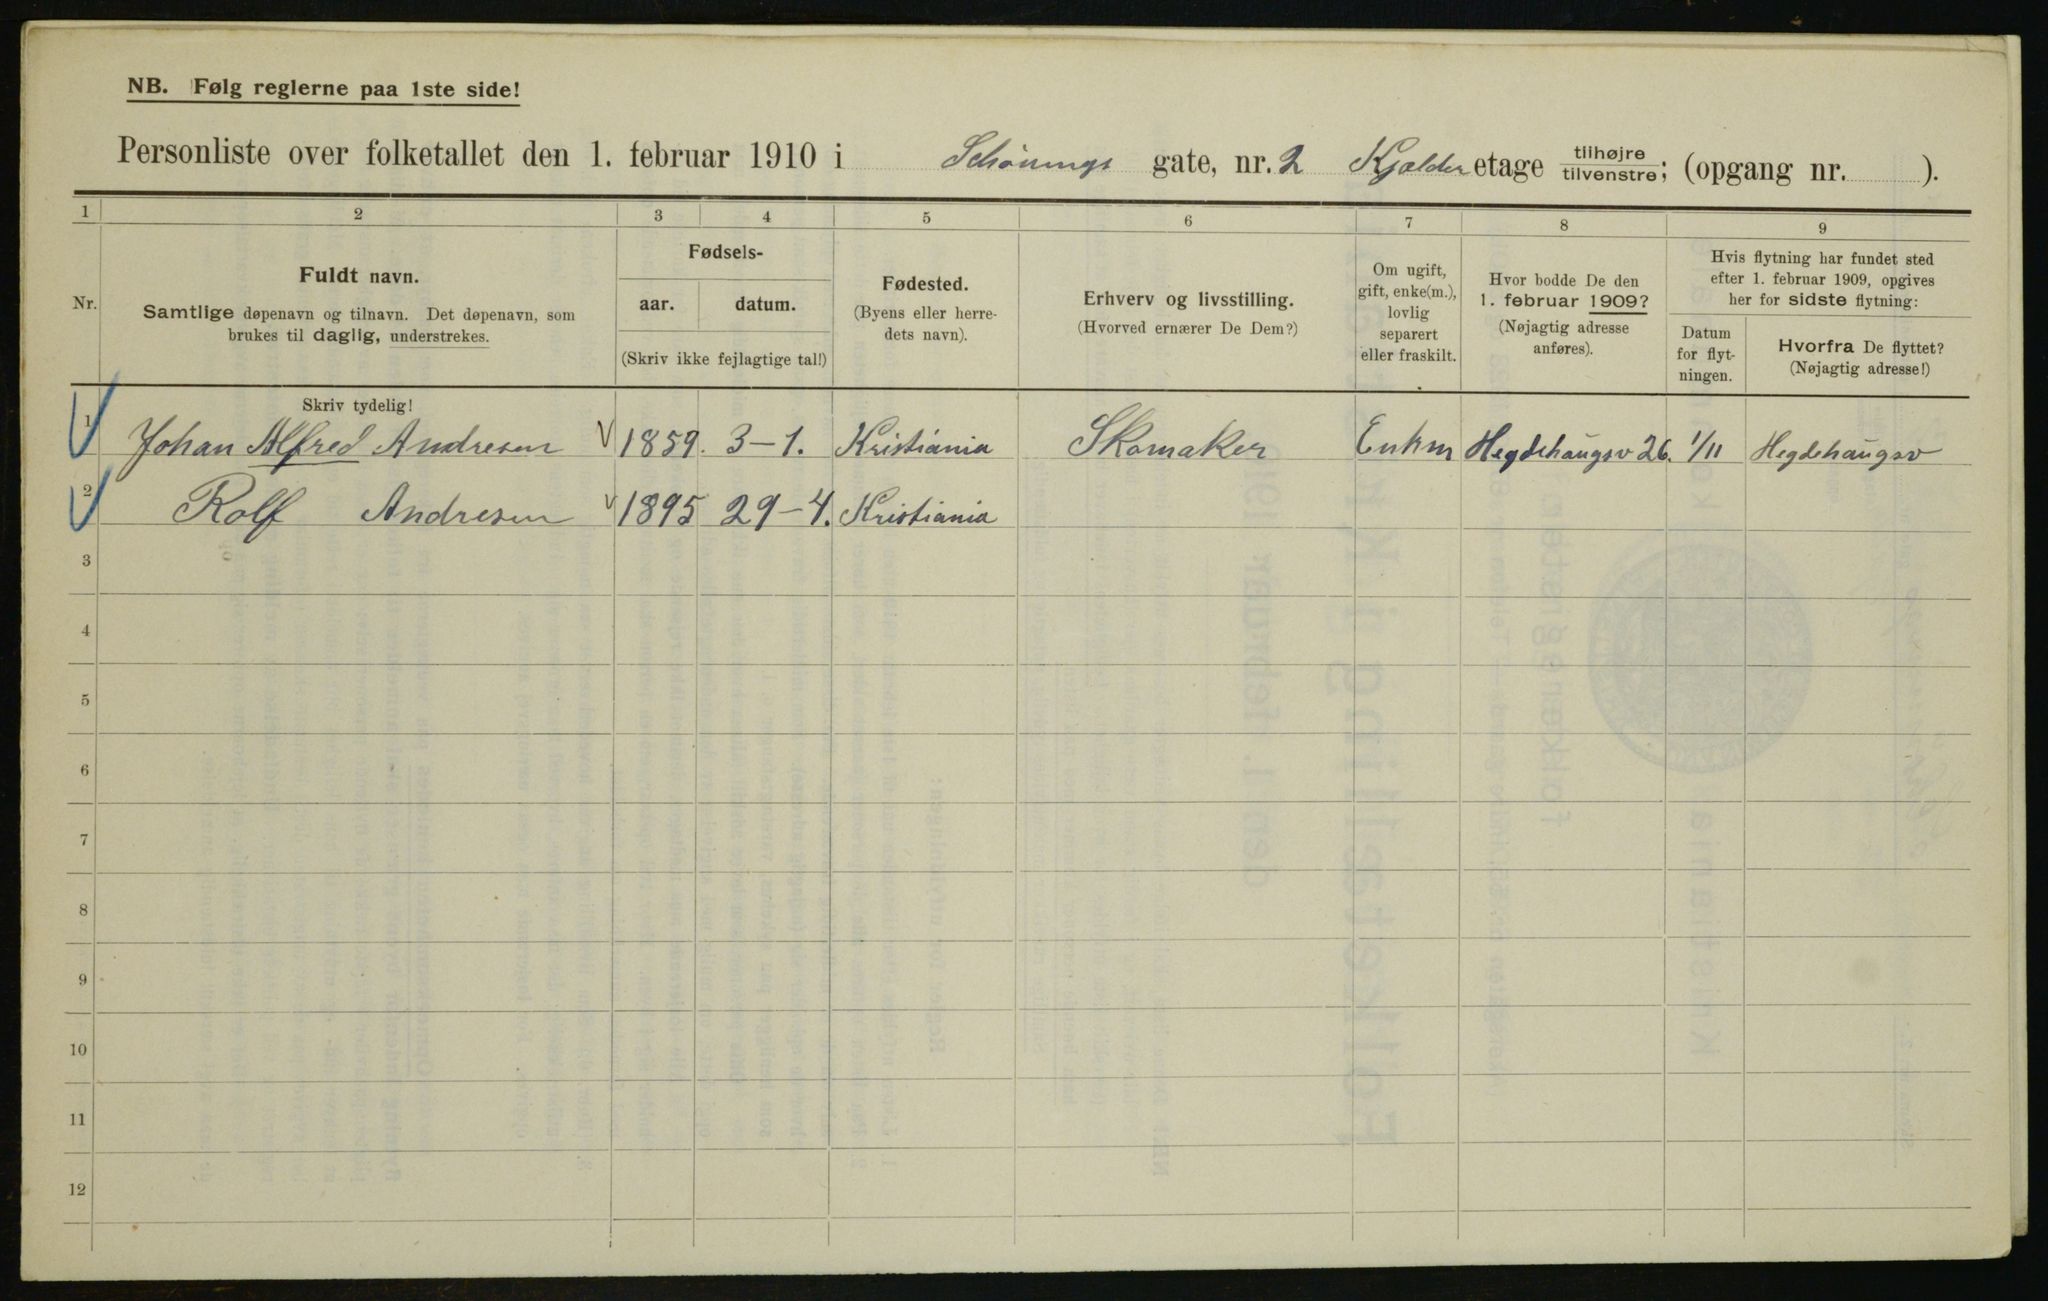 NB. Følg reglerne paa 1ste side!
Personliste over folketallet den 1. februar 1910 i Schønings gate, nr. 2 Kjælder etage tilhøjre tilvenstre; (opgang nr. ).
1 2 3 4 5 6 7 8 9
Nr.
Fuldt navn.
Samtlige døpenavn og tilnavn. Det døpenavn, som
brukes til daglig, understrekes.
Fødsels-
aar. datum.
(Skriv ikke fejlagtige tal!)
Fødested.
(Byens eller herre-
dets navn).
Erhverv og livsstilling.
(Hvorved ernærer De Dem?)
Om ugift,
gift, enke(m.),
lovlig
separert
eller fraskilt.
Hvor bodde De den
1. februar 1909?
(Nøjagtig adresse
anføres).
Hvis flytning har fundet sted
efter 1. februar 1909, opgives
her for sidste flytning:
Datum
for flyt-
ningen.
Hvorfra De flyttet?
(Nøjagtig adresse!)
Skriv tydelig!
1 Johan Alfred Andresen 1859. 3-1. Kristiania Skomaker Enkm Hegdehaugsv 26. 1/11 Hegdehaugsv
2 Rolf Andresen 1895 29-4. Kristiania
3
4
5
6
7
8
9
10
11
12